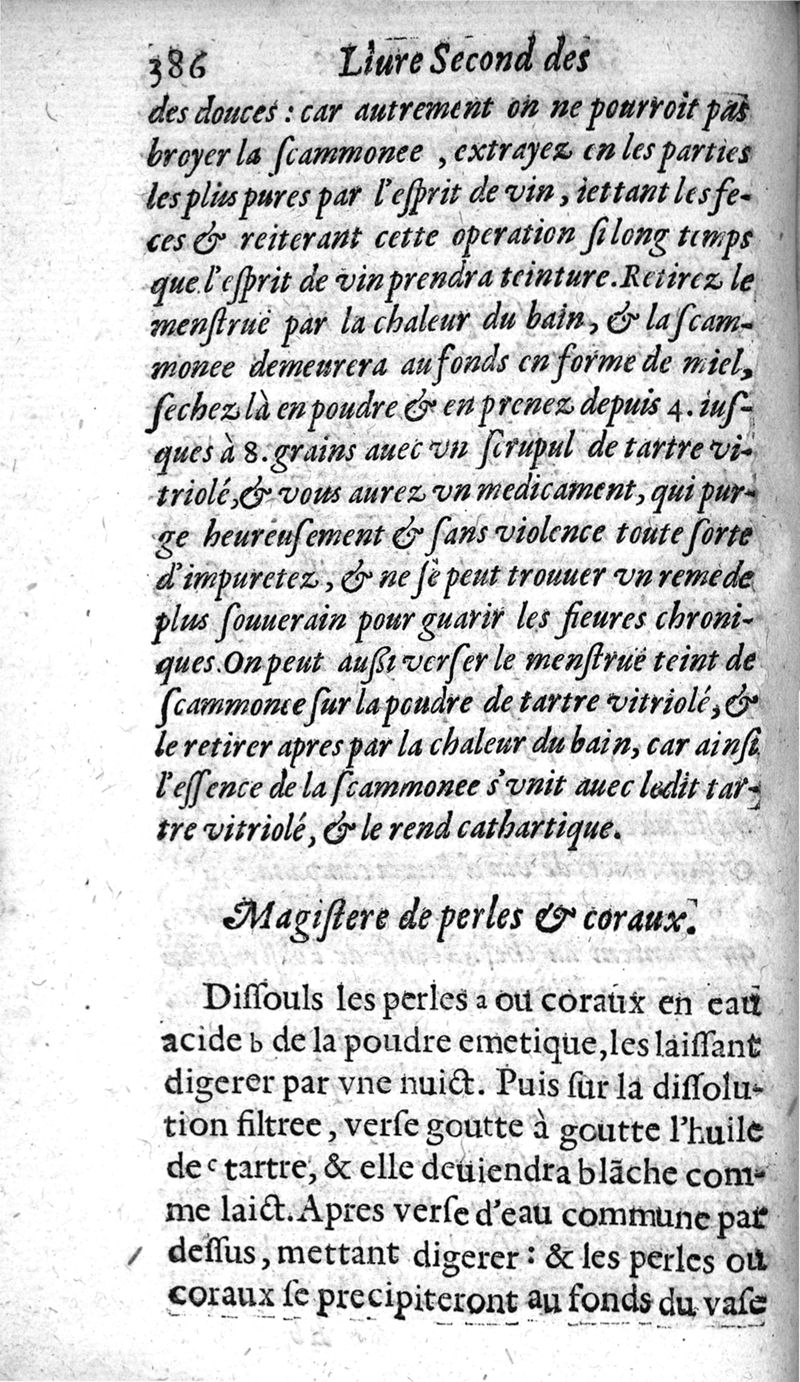 386 Liure Second des
des douces : car autrement on ne pourroit pas
broyer la ſcammonee , extrayez en les parties
les plus pures par l'eſprit de vin , iettant les fe-
ces & reiterant cette operation ſi long temps
que l'eſprit de vin prendra teinture. Retirez le
menſtruë par la chaleur du bain, & la ſcam-
monee demeurera au fonds en forme de miel,
ſechez là en poudre & en prenez depuis 4. iuſ-
ques à 8. grains auec vn ſcrupul de tartre vi-
triolé, & vous aurez vn medicament, qui pur-
ge heureuſement & ſans violence toute ſorte
d'impuretez , & ne ſe peut trouuer vn remede
plus ſouuerain pour guarir les fieures chroni-
ques. On peut auſſi verſer le menſtruë teint de
ſcammonee ſur la poudre de tartre vitriolé, &
le retirer apres par la chaleur du bain, car ainſi
l'eſſence de la ſcammonee s'vnit auec ledit tar-
tre vitriolé, & le rend cathartique.
Magiſtere de perles & coraux.
Diſſouls les perles a ou coraux en eau
acide b de la poudre emetique, les laiſſant
digerer par vne nuict. Puis ſur la diſſolu-
tion filtree , verſe goutte à goutte l'huile
de c tartre, & elle deuiendra blãche com-
me laict. Apres verſe d'eau commune par
deſſus, mettant digerer : & les perles ou
coraux ſe precipiteront au fonds du vaſe